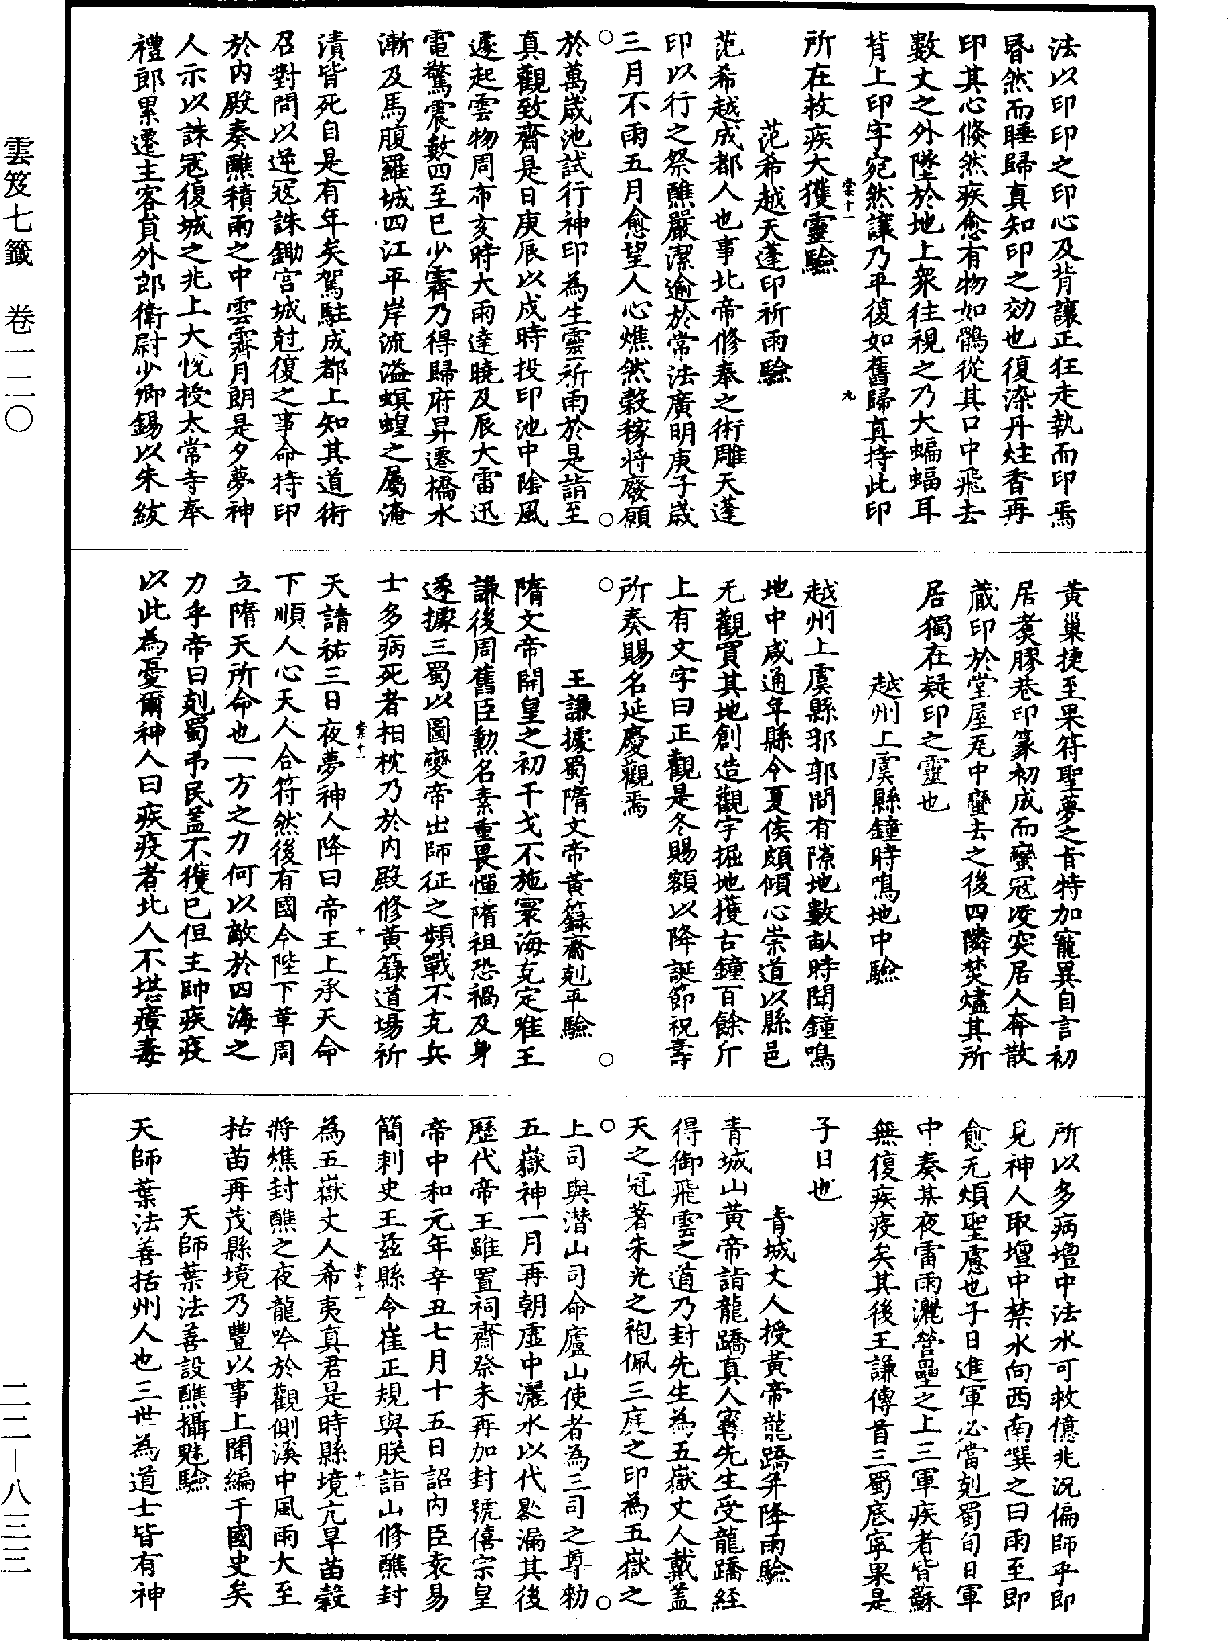 雲笈七籤　卷一二〇
二二—八三三
法以印印之印心及背讓正狂走執而印焉
昏然而睡歸真知印之効也復染丹炷香再
印其心倏然疾愈有物如鶻從其口中飛去
數丈之外墜於地上衆往視之乃大蝙蝠耳
背上印字宛然讓乃平復如舊歸真持此印
所在救疾大獲靈驗
范希越天蓬印祈雨驗
范希越成都人也事北帝修奉之術雕天蓬
印以行之祭醮嚴潔逾於常法廣明庚子歲
三月不雨五月愈望人心燋然穀稼將廢願
於萬歲池試行神印為生靈祈雨於是詣至
真觀致齋是日庚辰以戌時投印池中陰風
遽起雲物周布亥時大雨達曉及辰大雷迅
電驚震數四至巳少霽乃得歸府昇遷橋水
漸及馬腹羅城四江平岸流溢螟蝗之屬淹
漬皆死自是有年矣駕駐成都上知其道術
召對問以逆寇誅鋤宮城尅復之事命持印
於内殿奏醮積雨之中雲霽月朗是夕夢神
人示以誅寇復城之兆上大悅授太常寺奉
禮郎累遷主客員外郎衛尉少卿錫以朱紱
黃巢捷至果符聖夢之旨特加寵異自言初
居煑膠巷印篆初成而蠻寇凌突居人奔散
藏印於堂屋瓦中蠻去之後四隣焚燼其所
居獨在疑印之靈也
越州上虞縣鐘時鳴地中驗
越州上虞縣邪郭間有隙地數畝時聞鐘鳴
地中咸通年縣令夏侯頗傾心崇道以縣邑
无觀買其地創造觀宇掘地獲古鐘百餘斤
上有文字曰正觀是冬賜額以降誕節祝壽
所奏賜名延慶觀焉
王謙據蜀隋文帝黃籙齋剋平驗
隋文帝開皇之初干戈不施寰海克定唯王
謙後周舊臣勳名素重畏憚隋祖恐禍及身
遂據三蜀以圖變帝出師征之頻戰不克兵
士多病死者相枕乃於内殿修黃籙道場祈
天請祐三日夜夢神人降曰帝王上承天命
下順人心天人合符然後有國今陛下革周
立隋天所命也一方之力何以敵於四海之
力乎帝曰剋蜀弔民蓋不獲巳但主帥疾疫
以此為憂爾神人曰疾疫者北人不堪瘴毒
所以多病壇中法水可救億兆況偏師乎即
見神人取壇中禁水向西南噀之曰雨至即
愈无煩聖慮也子日進軍必當剋蜀旬日軍
中奏某夜雷雨灑營壘之上三軍疾者皆蘇
無復疾疫矣其後王謙傳首三蜀底寧果是
子日也
青城丈人授黃帝龍蹻并降雨驗
青城山黃帝詣龍蹻真人甯先生受龍蹻經
得御飛雲之道乃封先生為五嶽丈人戴蓋
天之冠著朱光之袍佩三庭之印為五嶽之
上司與潛山司命廬山使者為三司之尊勑
五嶽神一月再朝虛中灑水以代晷漏其後
歷代帝王雖置祠齋祭未再加封號僖宗皇
帝中和元年辛丑七月十五日詔内臣袁易
簡刺史王茲縣令崔正規與朕詣山修醮封
為五嶽丈人希夷真君是時縣境亢旱苗穀
將燋封醮之夜龍吟於觀側溪中風雨大至
枯苗再茂縣境乃豐以事上聞編于國史矣
天師葉法善設醮攝魅驗
天師葉法善括州人也三世為道士皆有神